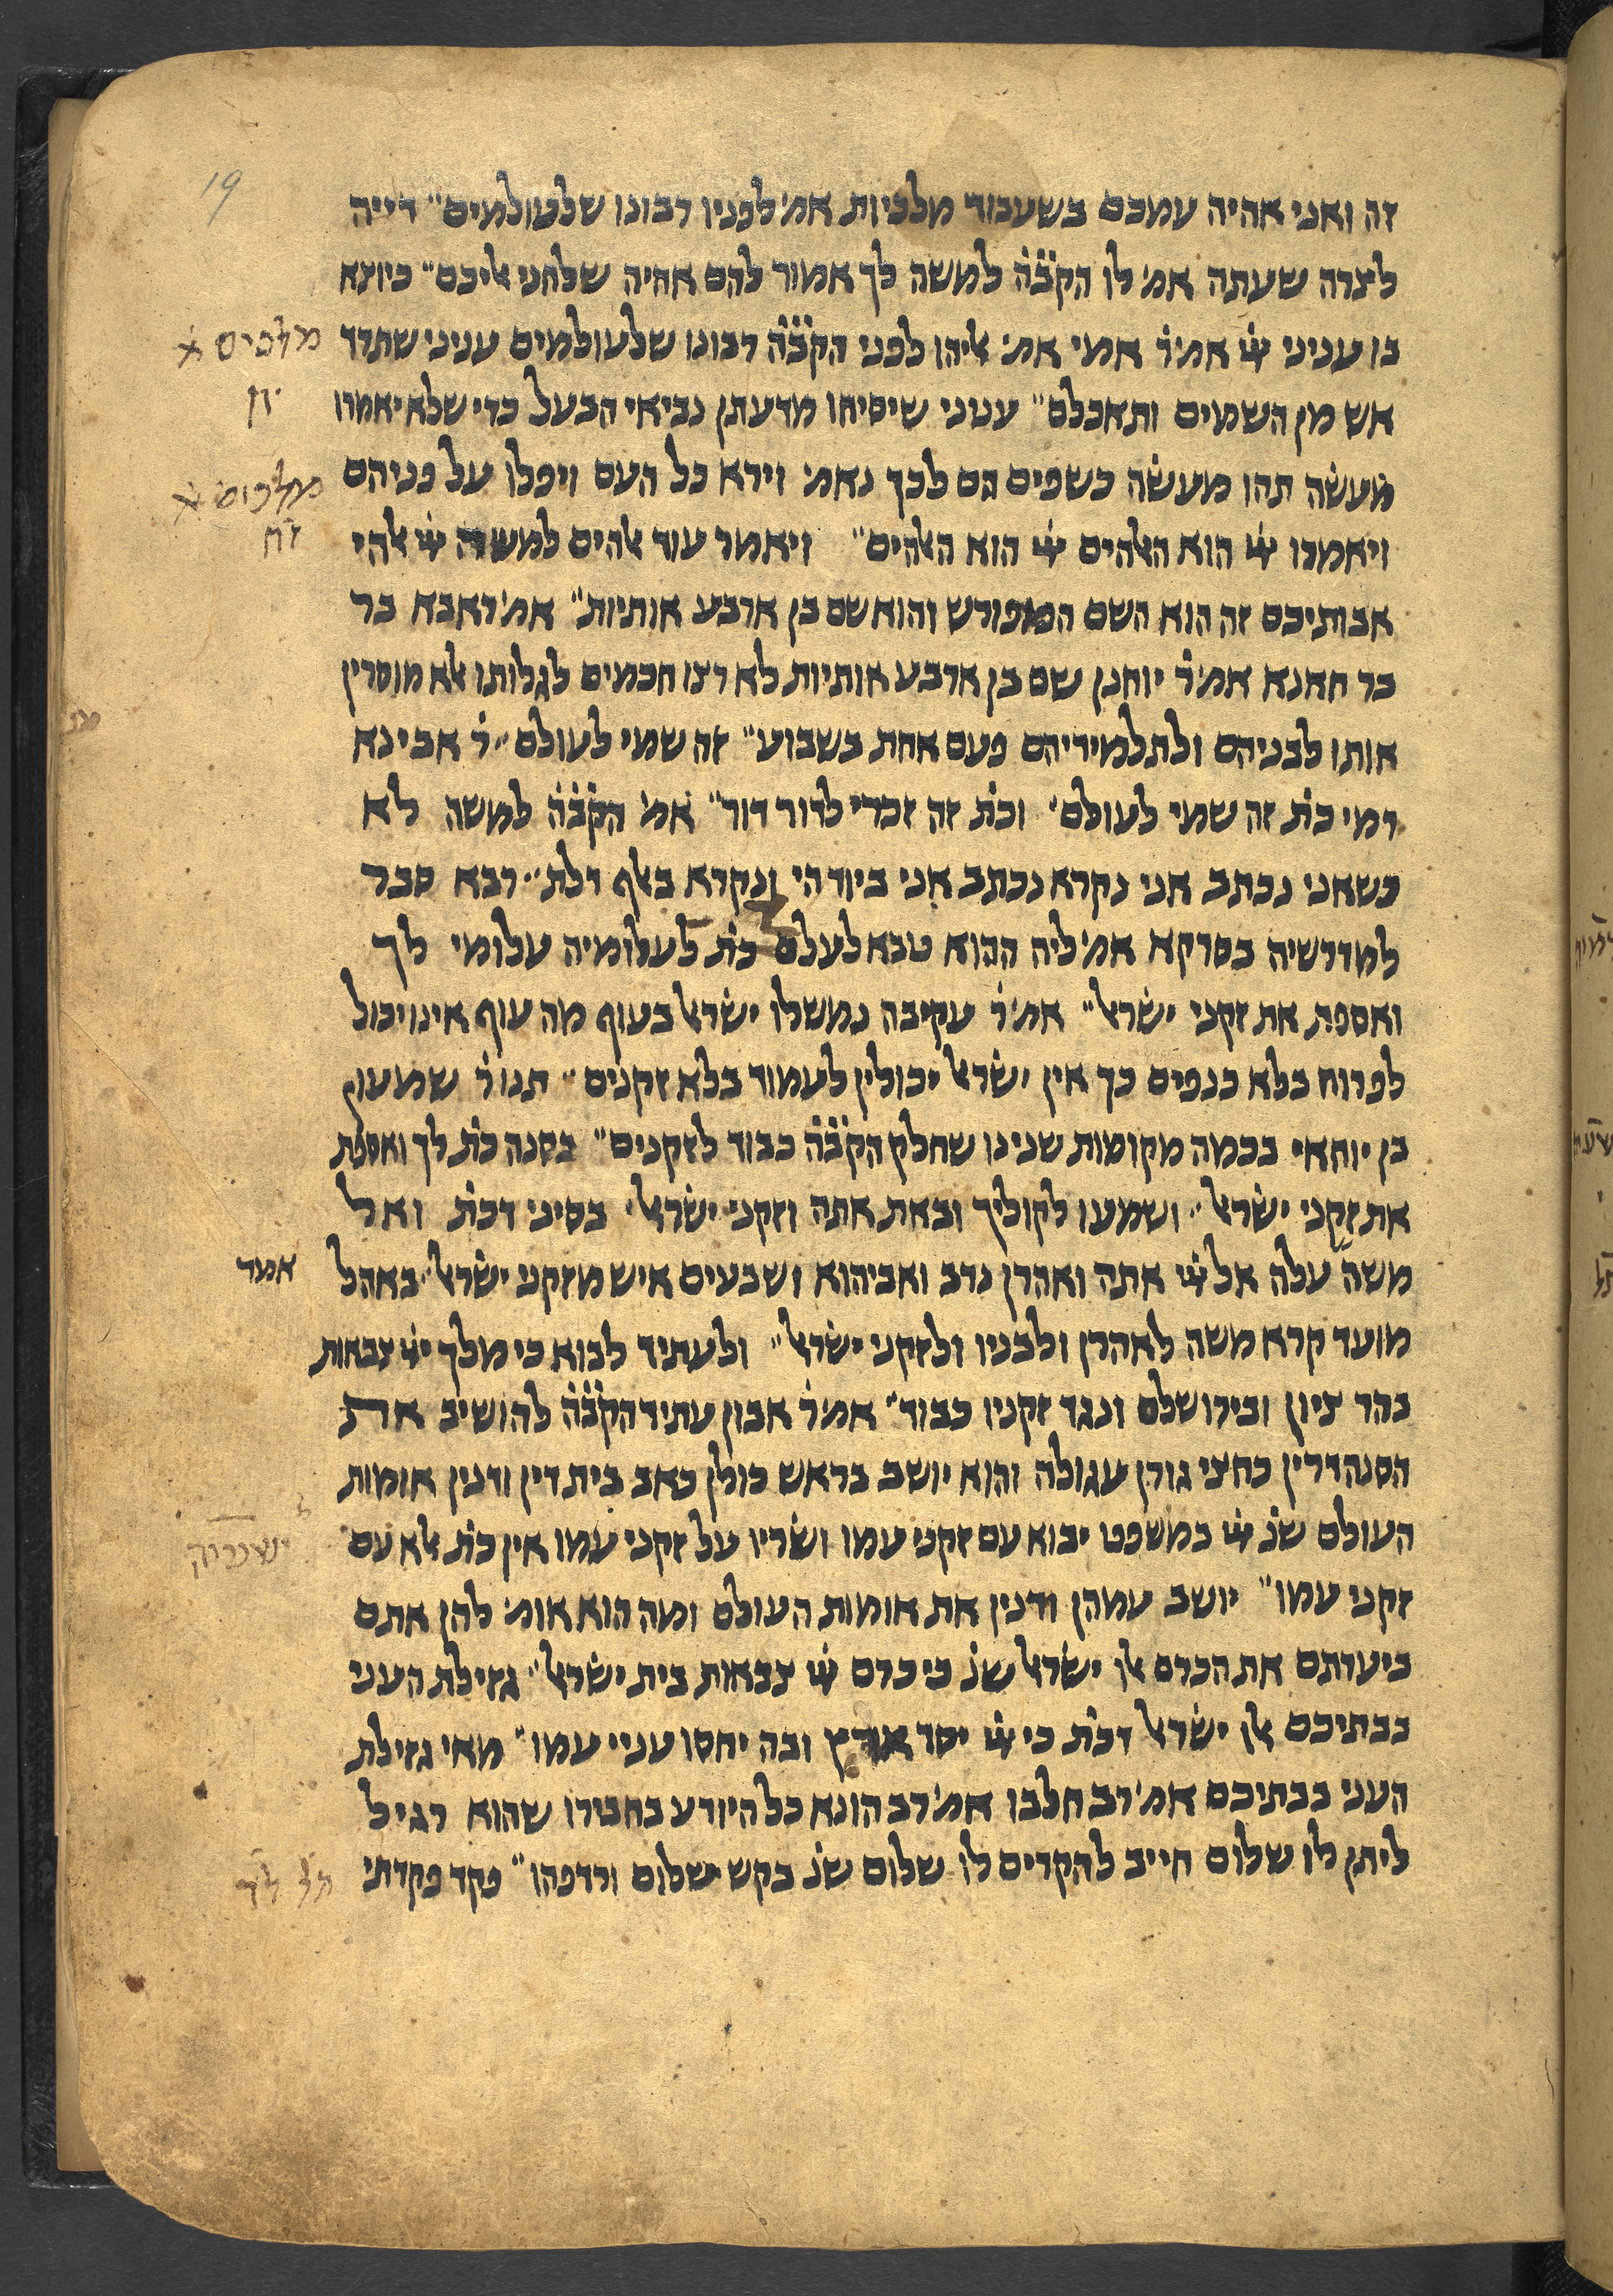 19
זה ואני אהיה עמכם בשעבוד מלכיות אמ׳ לפניו רבונו שלעולמים״ דייה
לצרה שעתה אמ׳ לו הקבׄהׄ למשה לך אמור להם אהיה שלחני אליכם״ כיוצא
בו ענייני יי׳ אמ׳ ר׳ אמי אמ׳ אליהו לפני הקבׄהׄ רבונו שלעולמים עניני שתרד
מלכים א׳
יח
אש מן השמים ותאכלם״ ענוני שיסיחו מדעתן נביאי הבעל כדי שלא יאמרו
מעשה תהו מעשה כשפים הם לכך נאמ׳ וירא כל העם ויפלו על פניהם
מלכים א׳
יח
ויאמרו יי׳ הוא האלהים יי׳ הוא האלהים״ ויאמר עוד אלהים למשה יי׳ אלהי
אבותיכם זה הוא השם המפורש והוא שם בן ארבע אותיות״ אמ׳ ראבא בר
בר חאנא אמ׳ ר׳ יוחנן שם בן ארבע אותיות לא רצו חכמים לגלותו אלא מוסרין
אותו לבניהם ולתלמידיהם פעם אחת בשבוע״ זה שמי לעולם״ ר׳ אבינא
רמי כת׳ זה שמי לעולם׳ וכת׳ זה זכרי לדור דור״ אמ׳ הקבׄהׄ למשה לא
כשאני נכתב אני נקרא נכתב אני ביוד הי ונקרא באלף דלת״ רבא סבר
למדרשיה בפרקא אמ׳ ליה ההוא סבא לעלם כת׳ לעלומיה עלומי לך
ואספת את זקני ישראל״ אמ׳ ר׳ עקיבה נמשלו ישראל בעוף מה עוף אינו יכול
לפרוח בלא כנפים כך אין ישראל יכולין לעמוד בלא זקנים״ תנו ר׳ שמעון
בן יוחאי בכמה מקומות שנינו שחלק הקבׄהׄ כבוד לזקנים״ בסנה כת׳ לך ואספת
את זקני ישראל״ ושמעו לקוליך ובאת אתה וזקני ישראל׳ בסיני דכת׳ ואל
משה עלה אל יי׳ אתה ואהרן נדב ואביהוא ושבעים איש מזקני ישראל״ באהל
אמר
מועד קרא משה לאהרן ולבניו ולזקני ישראל״ ולעתיד לבוא כי מלך יי׳ צבאות
בהר ציון ובירושלם ונגד זקניו כבוד״ אמ׳ ר׳ אבון עתיד הקבׄהׄ להושיב את
הסנהדרין כחצי גורן עגולה והוא יושב בראש כולן כאב בית דין ודנין אומות
העולם שנ׳ יי׳ במשפט יבוא עם זקני עמו ושריו על זקני עמו אין כת׳ אלא עם
זקני עמו״ יושב עמהן ודנין את אומות העולם ומה הוא אומ׳ להן אתם
ביערתם את הכרם אלו ישראל שנ׳ כי כרם יי׳ צבאות בית ישראל״ גזילת העני
בבתיכם אלו ישראל דכת׳ כי יי׳ יסד ובה יחסו עניי עמו״ מאי גזילת
העני בבתיכם אמ׳ רב חלבו אמ׳ רב הונא כל היודע בחבירו שהוא רגיל
ליתן לו שלום חייב להקדים לו שלום שנ׳ בקש שלום ורדפהו״ פקד פקדתי
תל׳ לד